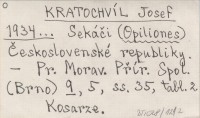 KRATOCHVÍL Josef
1934... Sekáči (Opiliones)
Československé republiky.
- Pr. Morav. Přír. Spol.
(Brno) 9, 5, ss. 35, tabl. 2
Kosarze.